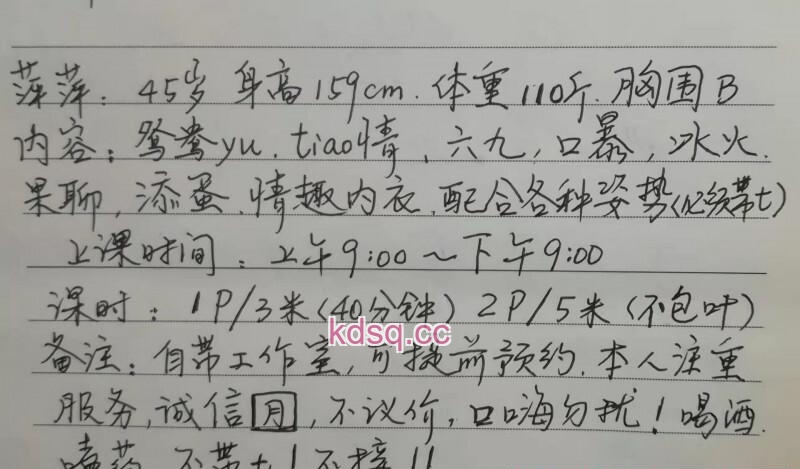 萍萍：45岁 身高159cm．体重110斤．胸围B
内容：鸳鸯yu．tiao情、六九，口暴，冰火．
果聊，添蛋．情趣内衣．配合各种姿势(必须带t)
上课时间：上午9:00～下午9:00
课时：1P/3米(40分钟) 2P/5米(不包叶)
kdsq.cc
备注：自带工作室，可提前预约．本人注重
服务，诚信月，不议价，口嗨勿扰！喝酒．
嗑药，不带t！不接！！